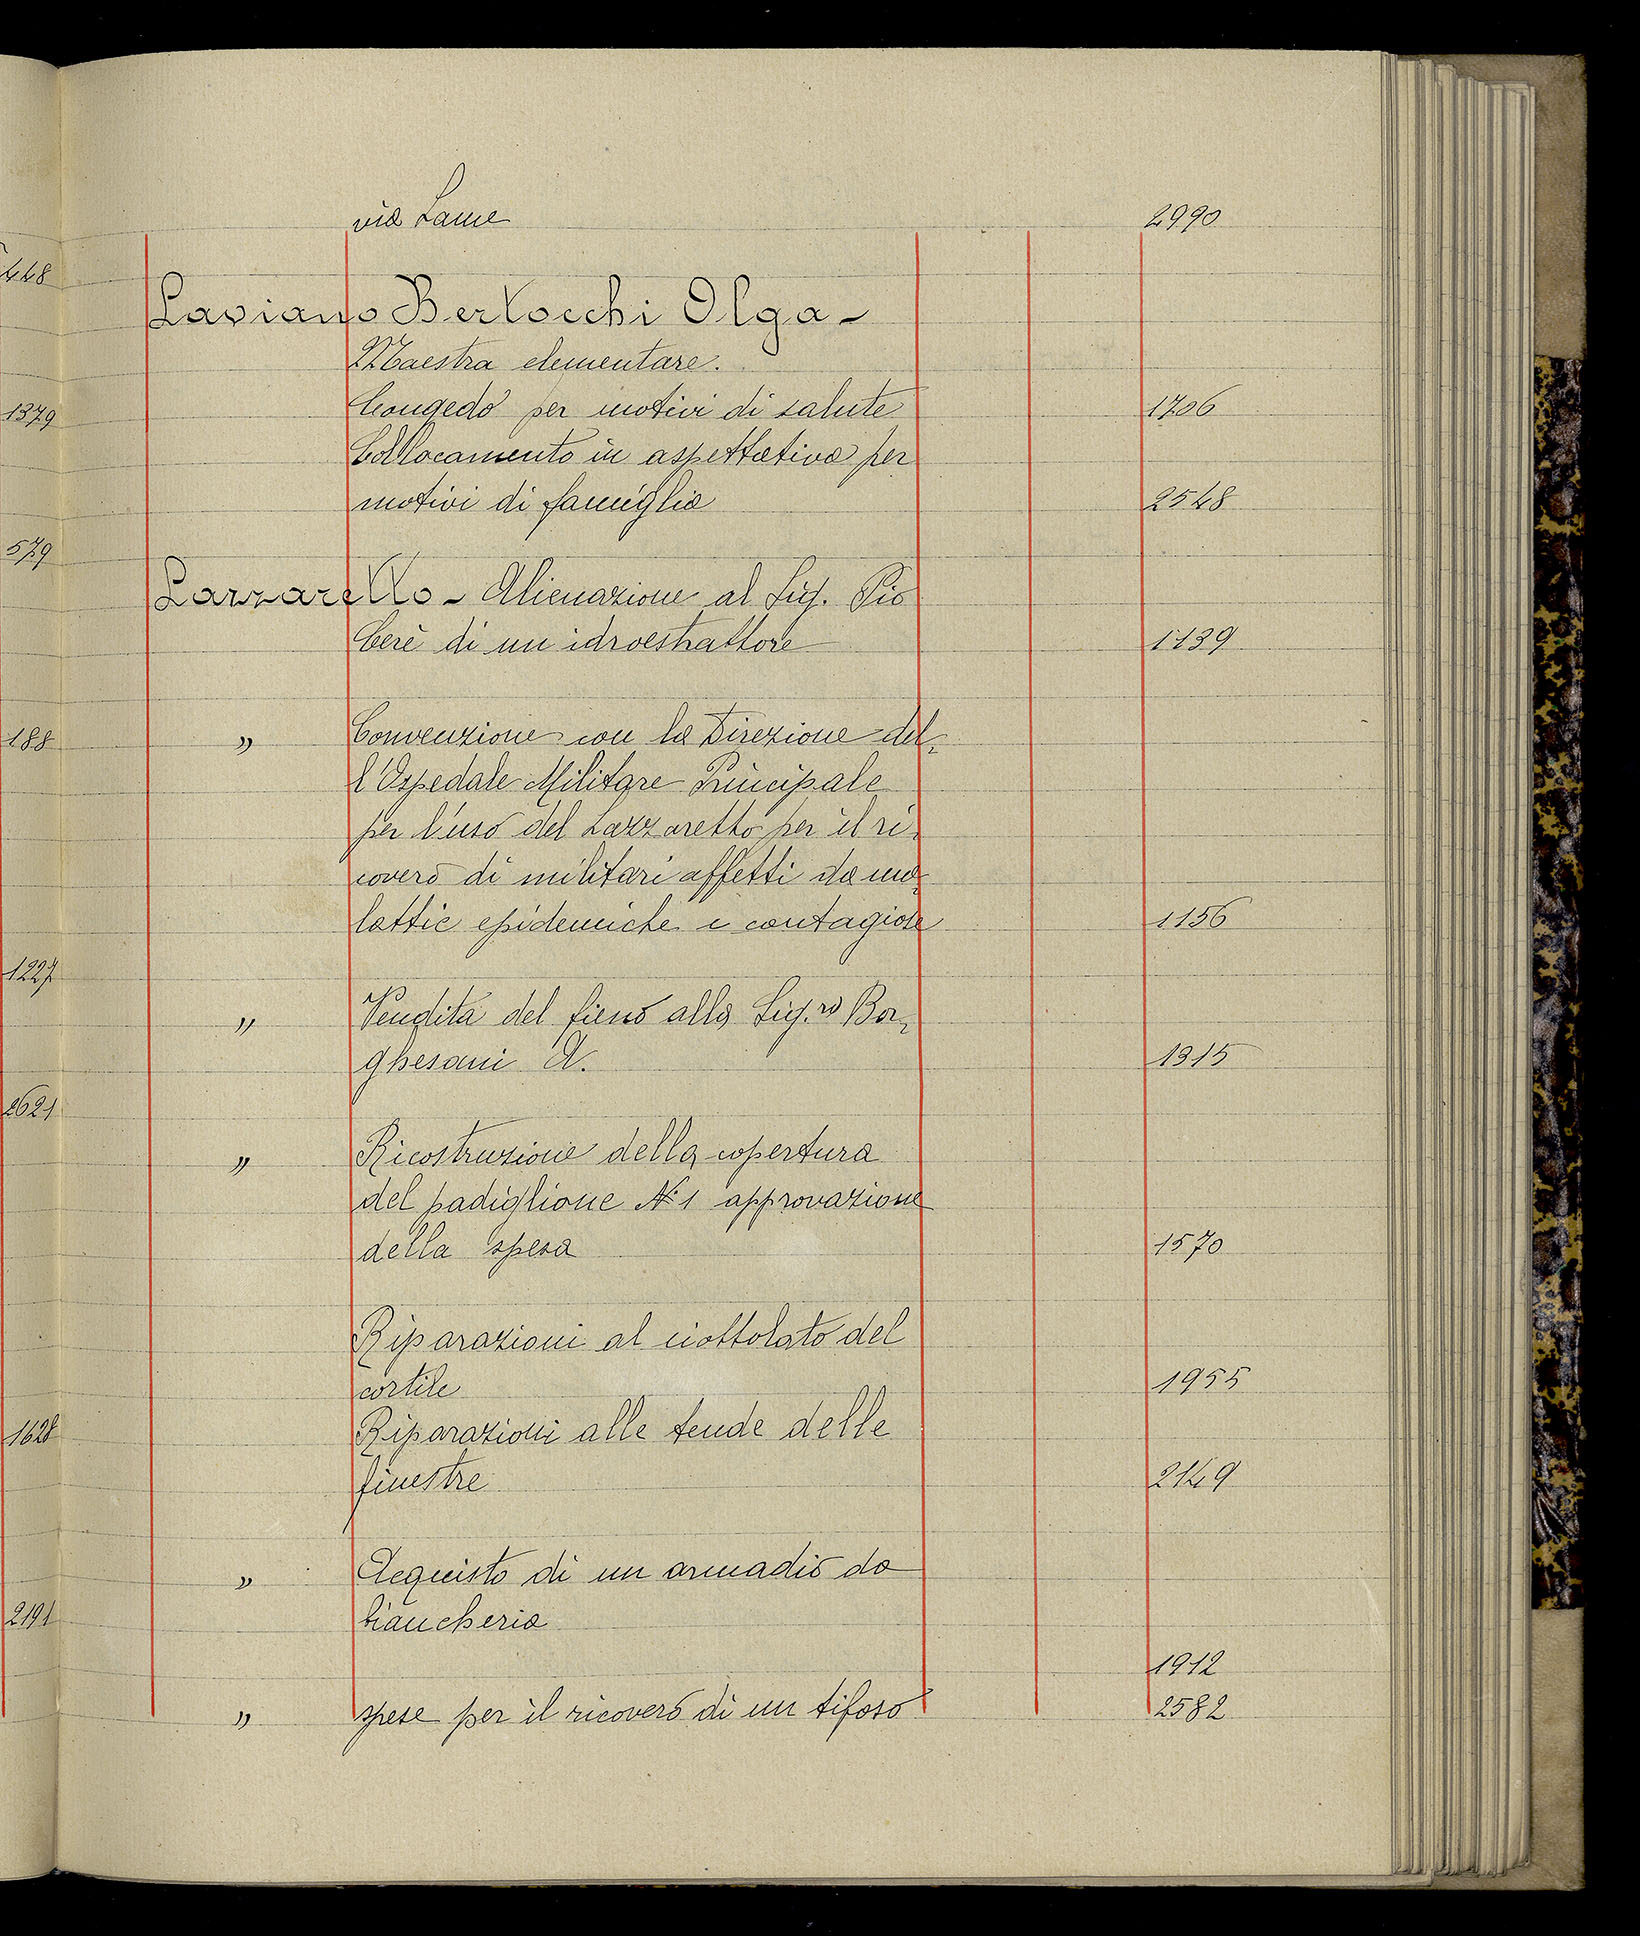 via Lame 2990
448
Laviano Bertocchi Olga -
Maestra elementare.
1379 Congedo per motivi di salute 1706
Collocamento in aspettativa per
motivi di famiglia 2548
579
Lazzaretto - Alienazione al Sig. Pio
Cerè di un idroestrattore 1139
188 " Convenzione con la Direzione del-
l'Ospedale Militare Principale
per l'uso del Lazzaretto per il ri-
covero di militari affetti da ma-
lattie epidemiche e contagiose 1156
1227
" Vendita del fieno alla Sig.ra Bor-
ghesani A. 1315
2621
" Ricostruzione della copertura
del padiglione N° 1 approvazione
della spesa 1570
Riparazioni al ciottolato del
cortile 1955
1628 Riparazioni alle tende delle
finestre 2149
" Acquisto di un armadio da
2191 biancheria
1912
" spese per il ricovero di un tifoso 2582